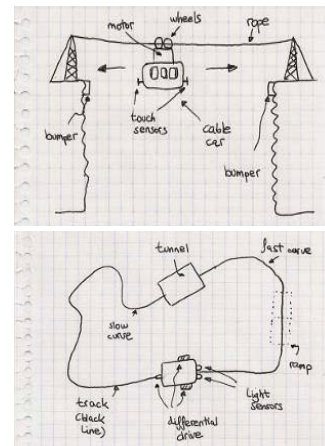 wheels
motor
rope
bumper
touch
sensors
cable
car
bumper
tunnel
fast curve
slow
curve
ramp
track
(black
line)
differential
drive
Light
sensors